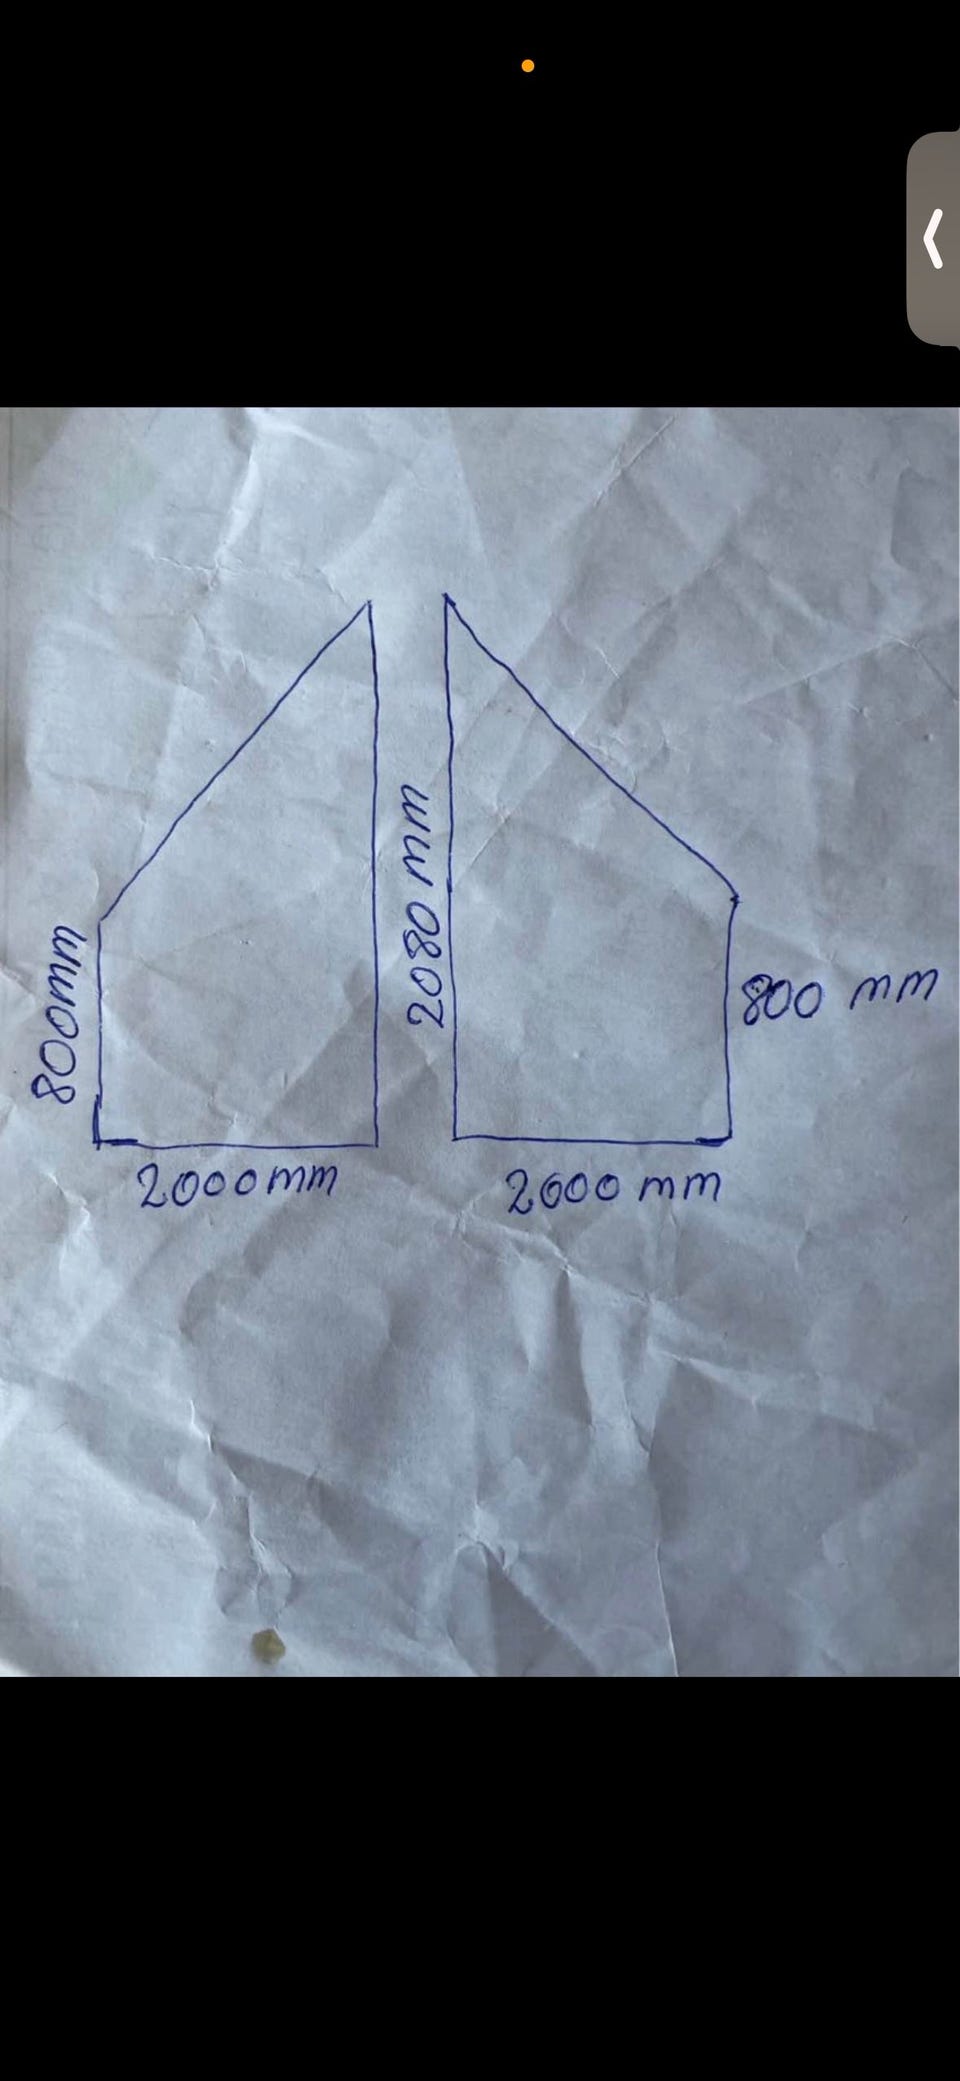 800mm
2080 mm
800 mm
2000mm
2000 mm